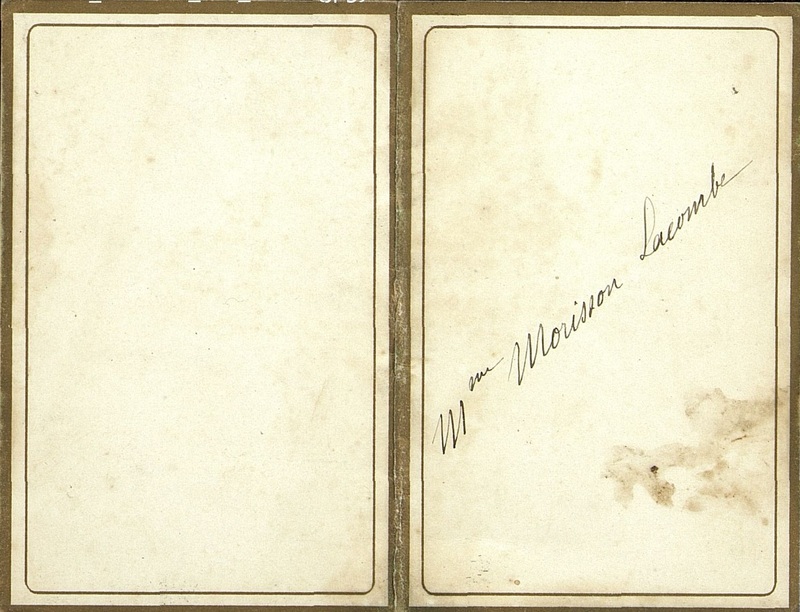 Mme Morisson Lacombe